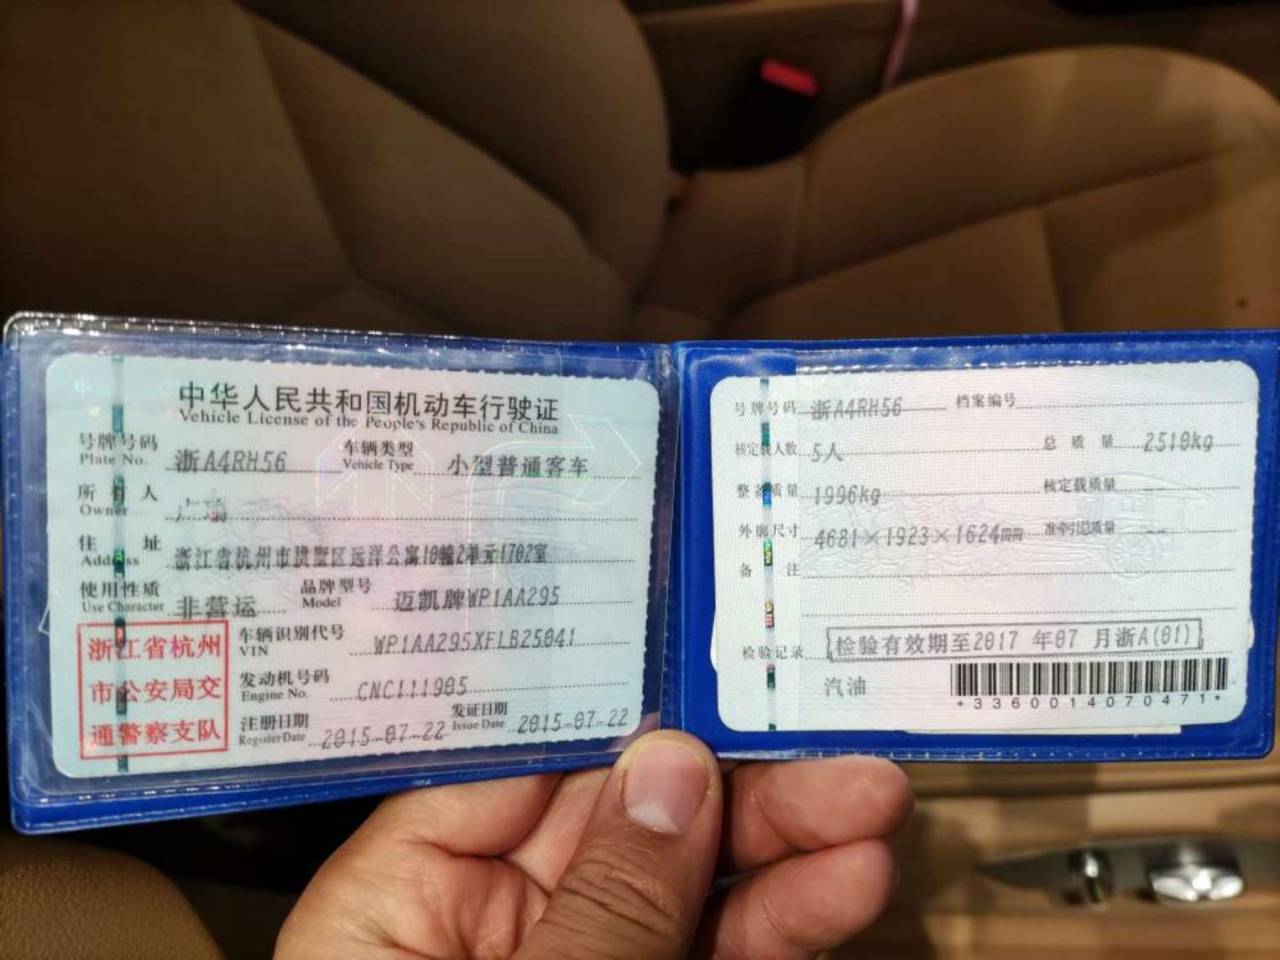 中华人民共和国机动车行驶证
Vehicle License of the People's Republic of China
号牌号码 浙A4RH56 车辆类型 小型普通客车
Plate No. Vehicle Type
所有人
Owner
住址 浙江省杭州市拱墅区远洋公寓10幢2单元1702室
Address
使用性质 非营运 品牌型号 迈凯牌WP1AA295
Use Character Model
浙江省杭州
市公安局交
通警察支队
车辆识别代号 WP1AA295XFLB25041
VIN
发动机号码 CNC111905
Engine No.
注册日期 2015-07-22 发证日期 2015-07-22
Register Date Issue Date
号牌号码 浙A4RH56 档案编号
核定载人数 5人 总质量 2510kg
整备质量 1996kg 核定载质量 --
外廓尺寸 4681×1923×1624mm 准牵引总质量 --
备注
检验记录 检验有效期至2017 年07 月浙A(01)
汽油
*3360014070471*